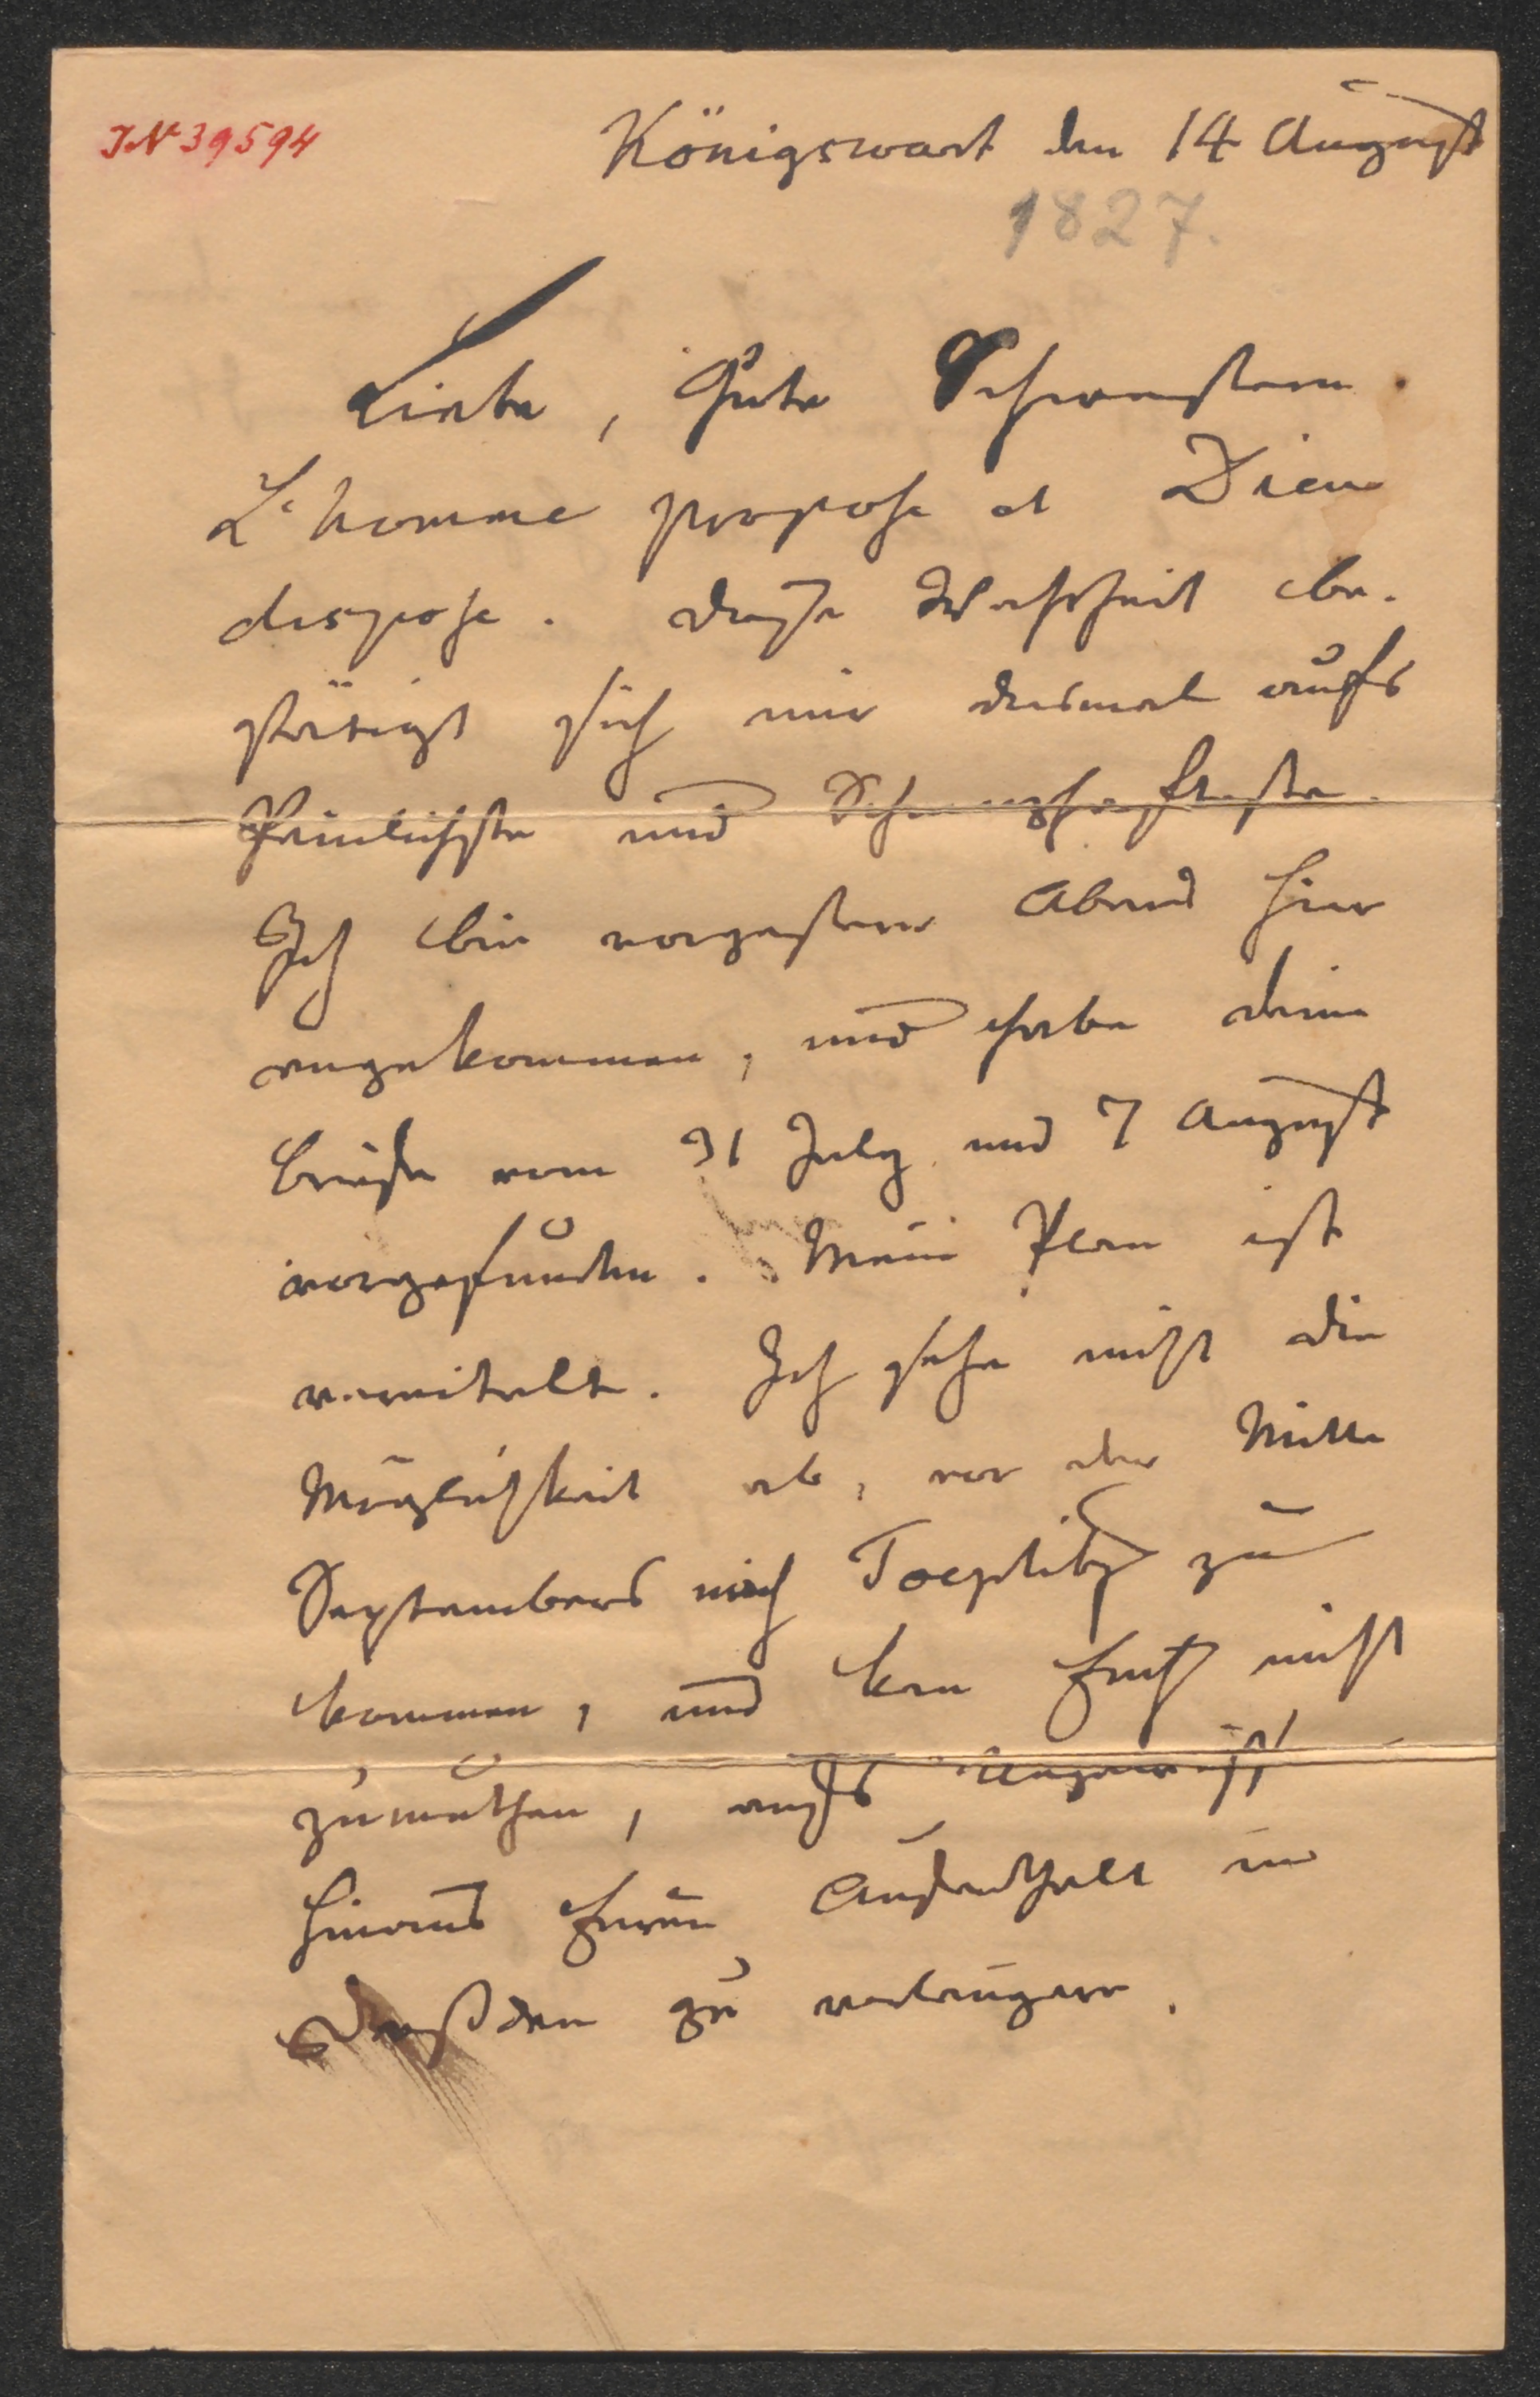 IN 39594
Königswart den 14 August
1827.
Liebe, Gute Schwestern.
L'homme propose et Dieu
dispose. Diese Wahrheit be-
stätigt sich mir diesmal aufs
Peinlichste und Schmerzhafteste.
Ich bin vorgestern Abend hier
angekommen, und habe deine
Briefe vom 31 July und 7 August
vorgefunden. Mein Plan ist
vereitelt. Ich sehe nicht die
Möglichkeit ab, vor der Mitte
Septembers nach Toeplitz zu
kommen, und kan Euch nicht
zumuthen, aufs Ungewisse
hinaus Euren Aufenthalt in
Dreßden zu verlängern.